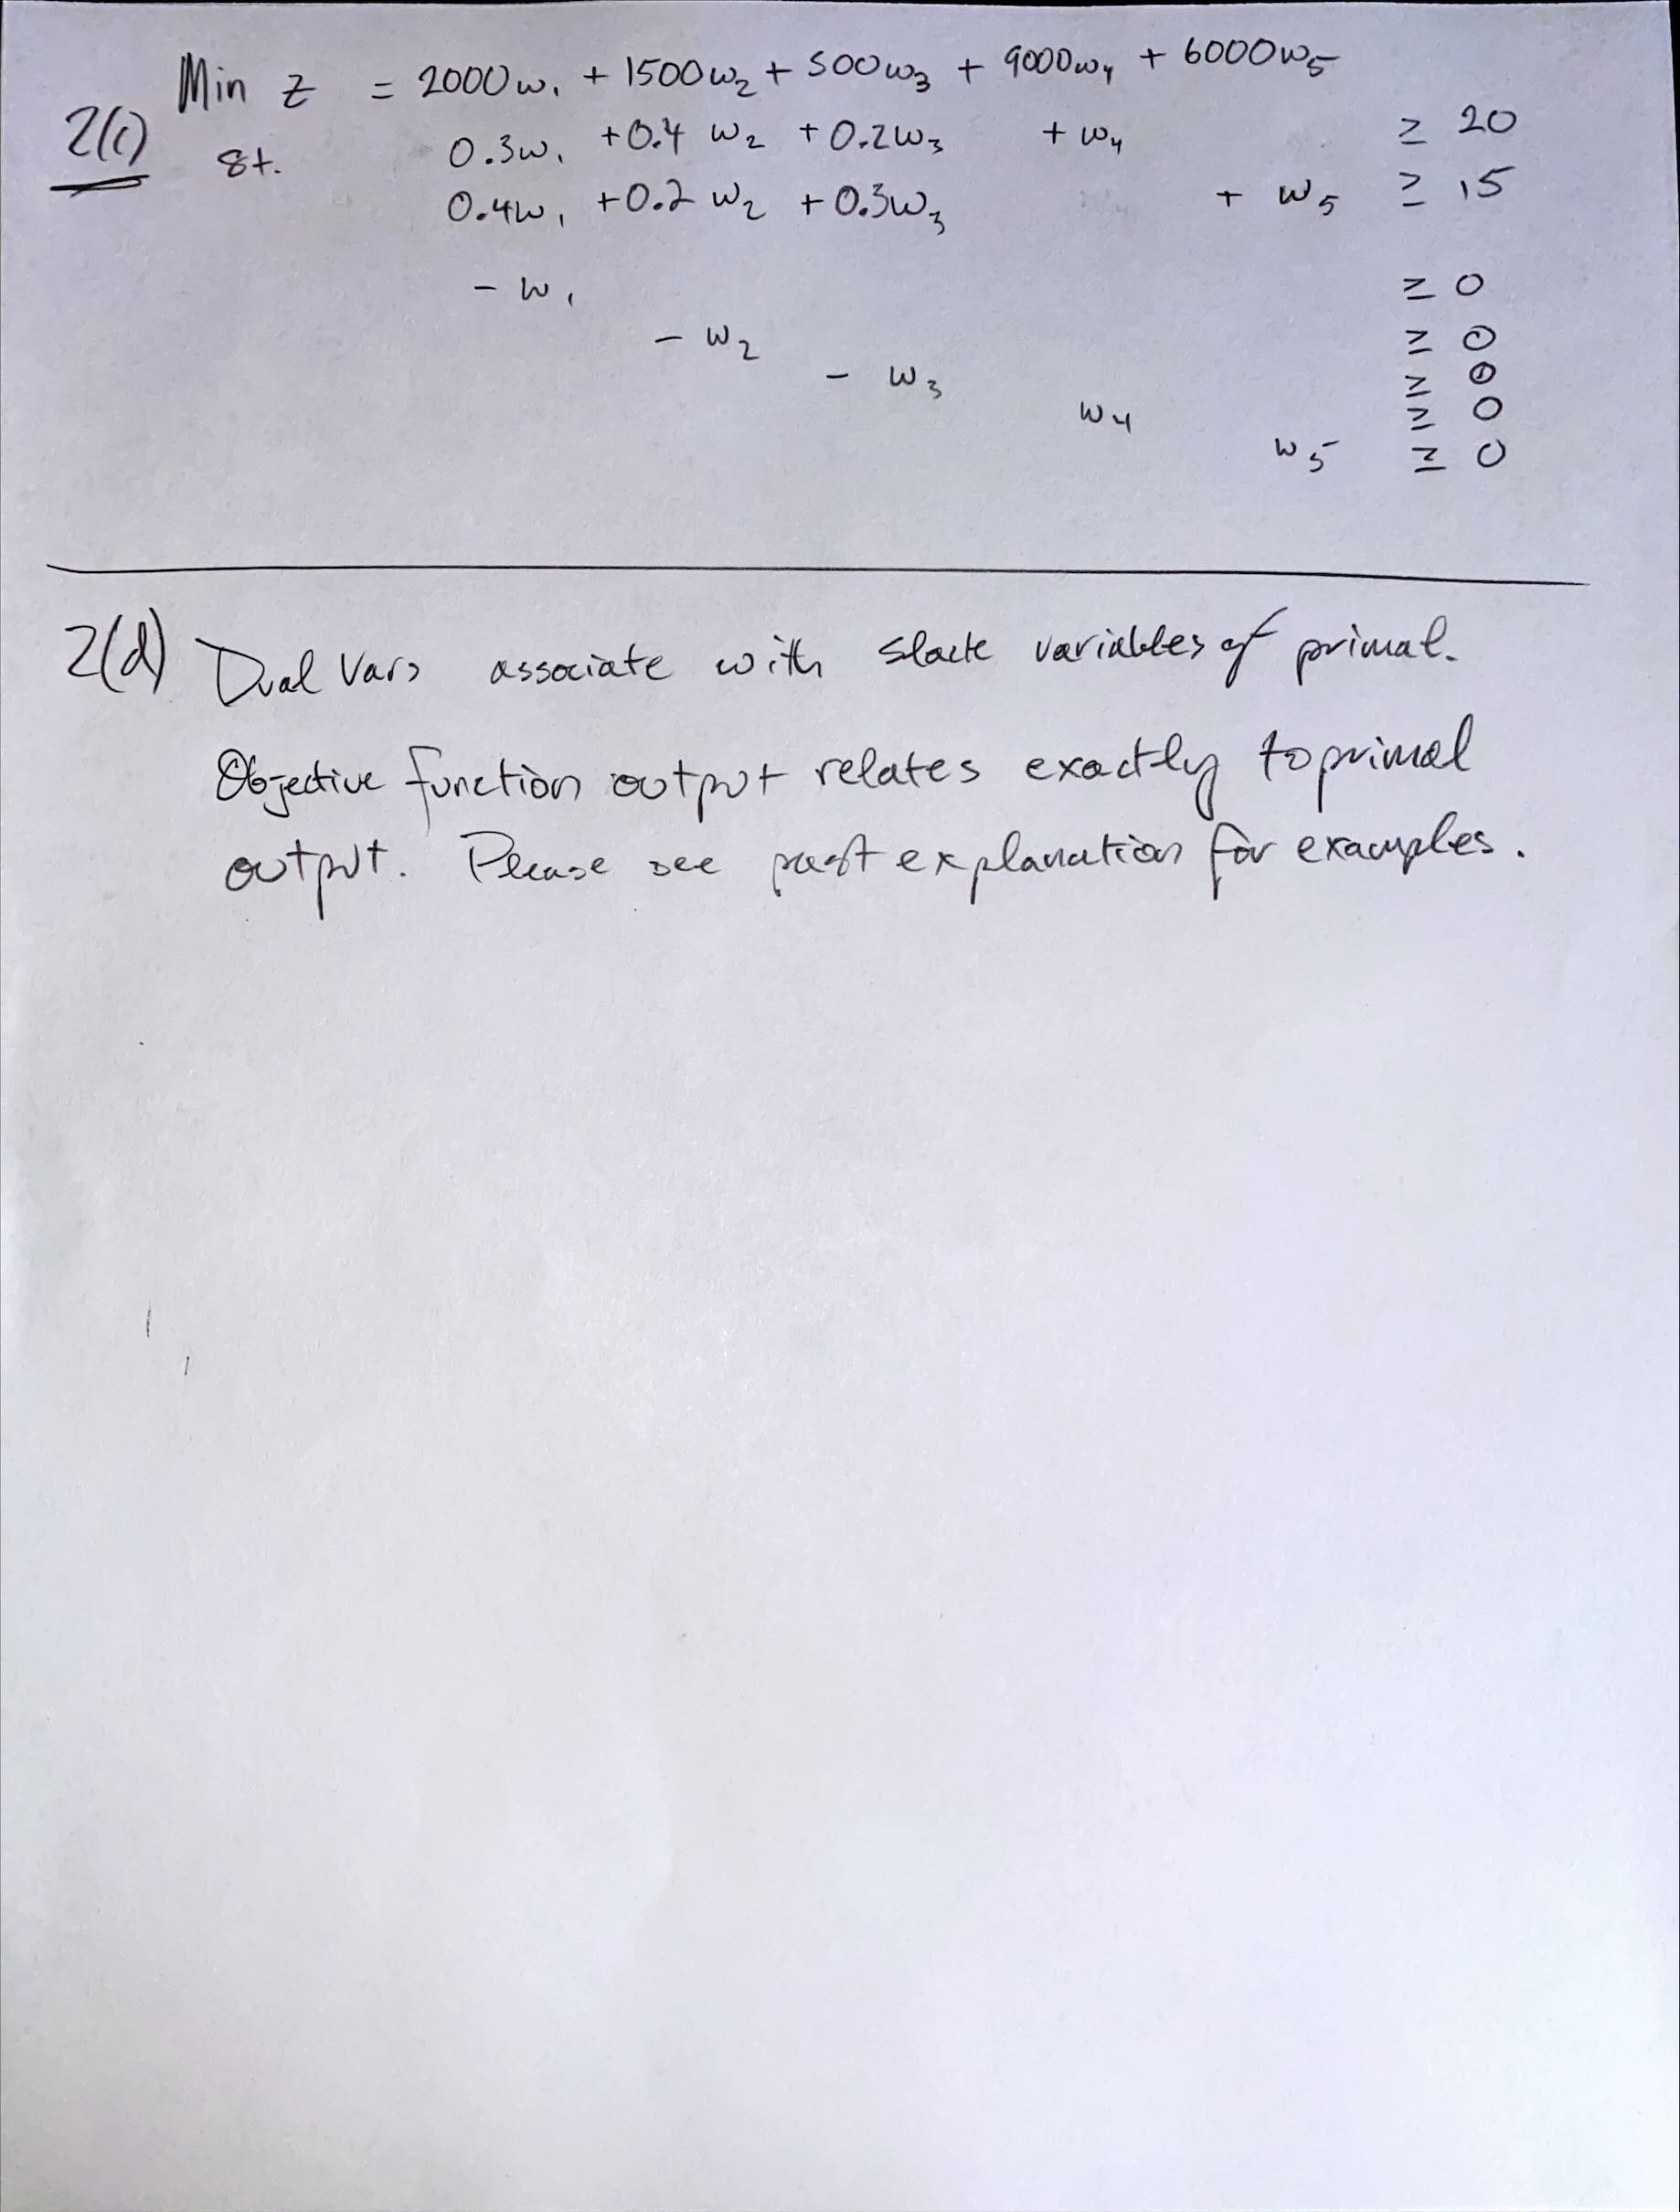 Min z = 2000w₁ + 1500w₂ + 500w₃ + 9000w₄ + 6000w₅
2(c) st. 0.3w₁ +0.4 w₂ +0.2w₃ + w₄ ≥ 20
0.4w₁ +0.2 w₂ +0.3w₃ + w₅ ≥ 15
- w₁ ≥ 0
- w₂ ≥ 0
- w₃ ≥ 0
w₄ ≥ 0
w₅ ≥ 0
2(d) Dual Vars associate with slack variables of primal.
Objective function output relates exactly to primal
output. Please see past explanation for examples.